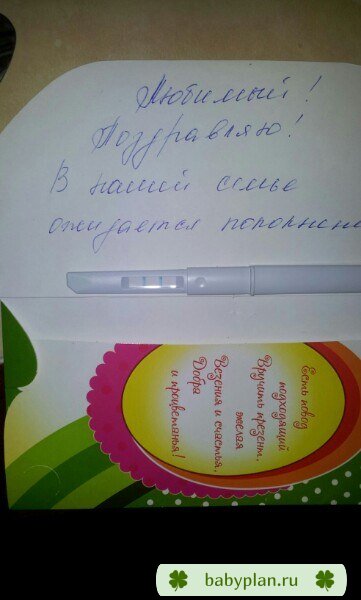 Любимый!
Поздравляю!
В нашей семье
ожидается пополнени
Есть повод
подходящий
Вручить презент,
желая
Везения и счастья,
Добра
и процветанья!
babyplan.ru